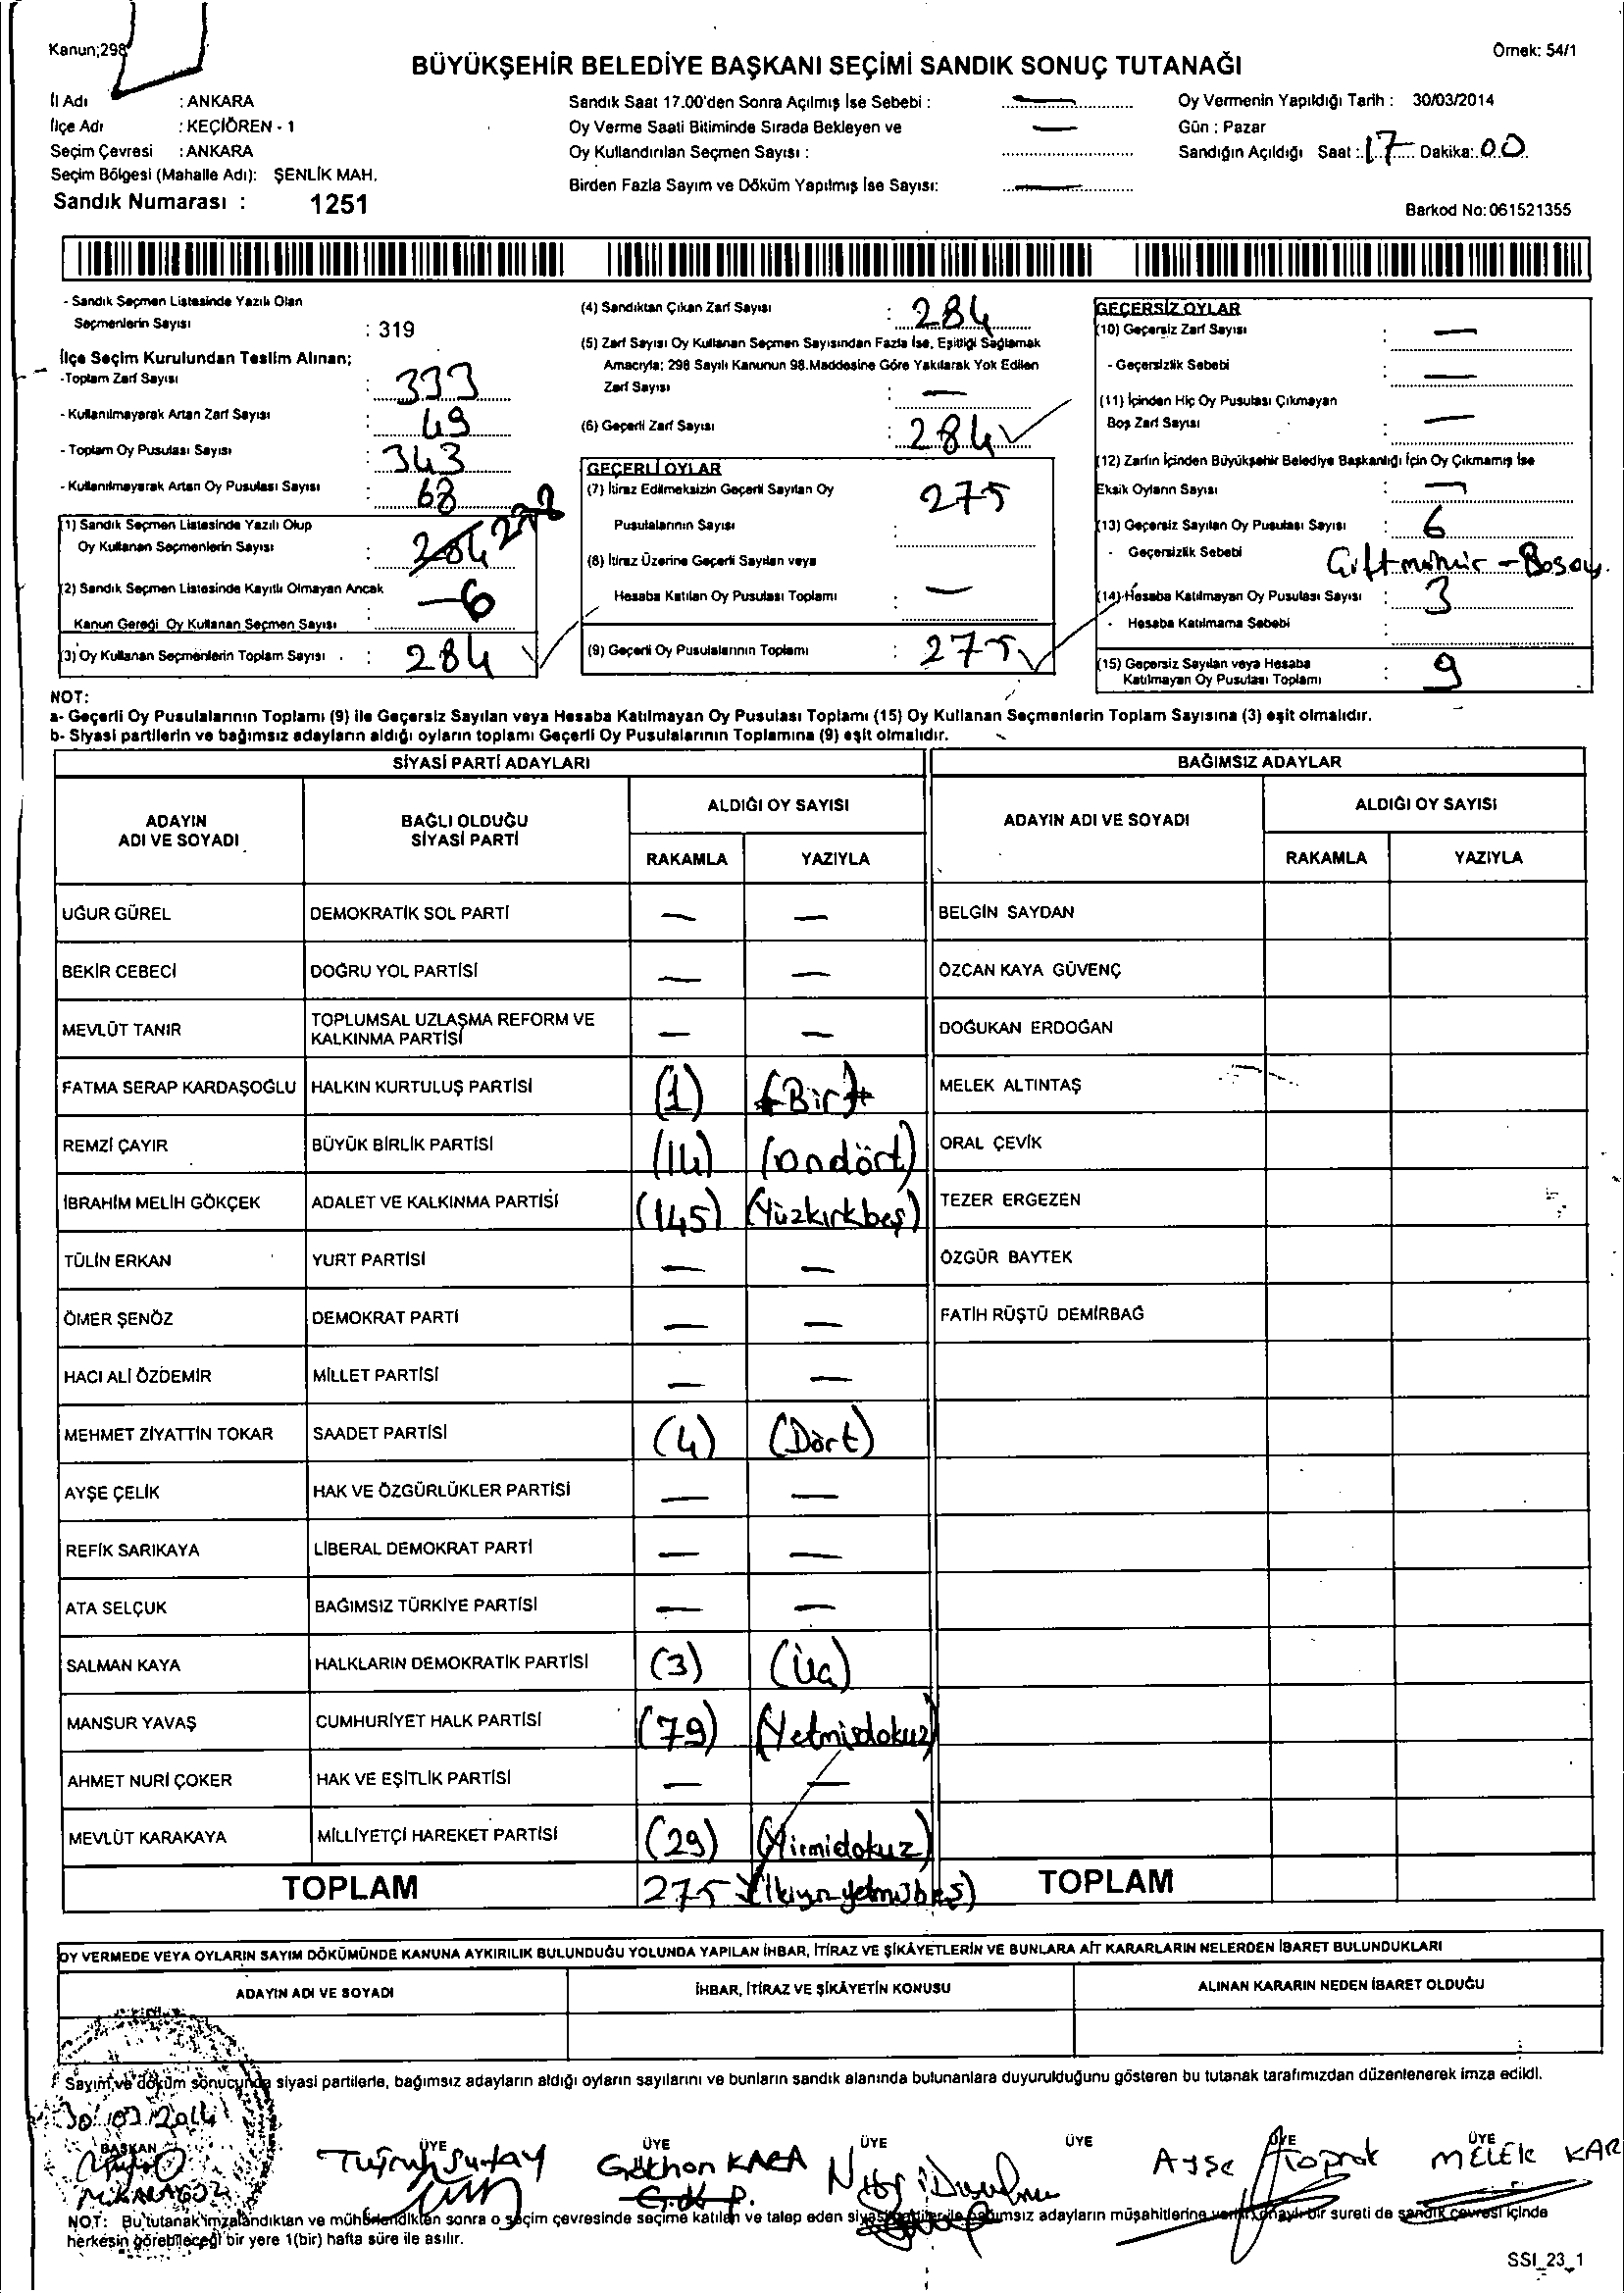 Kanun;298
Örnek: 54/1
BÜYÜKŞEHİR BELEDİYE BAŞKANI SEÇİMİ SANDIK SONUÇ TUTANAĞI
İl Adı : ANKARA
İlçe Adı : KEÇİÖREN - 1
Seçim Çevresi : ANKARA
Seçim Bölgesi (Mahalle Adı): ŞENLİK MAH.
Sandık Numarası : 1251
Sandık Saat 17.00'den Sonra Açılmış İse Sebebi : —
Oy Verme Saati Bitiminde Sırada Bekleyen ve —
Oy Kullandırılan Seçmen Sayısı :
Birden Fazla Sayım ve Döküm Yapılmış İse Sayısı: —
Oy Vermenin Yapıldığı Tarih : 30/03/2014
Gün : Pazar
Sandığın Açıldığı Saat : 17 Dakika: 00
Barkod No: 061521355
- Sandık Seçmen Listesinde Yazılı Olan
Seçmenlerin Sayısı : 319
İlçe Seçim Kurulundan Teslim Alınan;
-Toplam Zarf Sayısı : 333
- Kullanılmayarak Artan Zarf Sayısı : 49
- Toplam Oy Pusulası Sayısı : 343
- Kullanılmayarak Artan Oy Pusulası Sayısı : 68
(1) Sandık Seçmen Listesinde Yazılı Olup
Oy Kullanan Seçmenlerin Sayısı : 284 278
(2) Sandık Seçmen Listesinde Kayıtlı Olmayan Ancak
Kanun Gereği Oy Kullanan Seçmen Sayısı : —6
(3) Oy Kullanan Seçmenlerin Toplam Sayısı : 284
(4) Sandıktan Çıkan Zarf Sayısı : 284
(5) Zarf Sayısı Oy Kullanan Seçmen Sayısından Fazla İse, Eşitliği Sağlamak
Amacıyla; 298 Sayılı Kanunun 98.Maddesine Göre Yakılarak Yok Edilen
Zarf Sayısı : —
(6) Geçerli Zarf Sayısı : 284
GEÇERLİ OYLAR
(7) İtiraz Edilmeksizin Geçerli Sayılan Oy
Pusulalarının Sayısı : 275
(8) İtiraz Üzerine Geçerli Sayılan veya
Hesaba Katılan Oy Pusulası Toplamı : —
(9) Geçerli Oy Pusulalarının Toplamı : 275
GEÇERSİZ OYLAR
(10) Geçersiz Zarf Sayısı : —
- Geçersizlik Sebebi : —
(11) İçinden Hiç Oy Pusulası Çıkmayan
Boş Zarf Sayısı : —
(12) Zarfın İçinden Büyükşehir Belediye Başkanlığı İçin Oy Çıkmamış İse
Eksik Oyların Sayısı : —
(13) Geçersiz Sayılan Oy Pusulası Sayısı : 6
- Geçersizlik Sebebi Çift mühür - Boş oy.
(14) Hesaba Katılmayan Oy Pusulası Sayısı : 3
- Hesaba Katılmama Sebebi :
(15) Geçersiz Sayılan veya Hesaba
Katılmayan Oy Pusulası Toplamı : 9
NOT:
a- Geçerli Oy Pusulalarının Toplamı (9) ile Geçersiz Sayılan veya Hesaba Katılmayan Oy Pusulası Toplamı (15) Oy Kullanan Seçmenlerin Toplam Sayısına (3) eşit olmalıdır.
b- Siyasi partilerin ve bağımsız adayların aldığı oyların toplamı Geçerli Oy Pusulalarının Toplamına (9) eşit olmalıdır.
SİYASİ PARTİ ADAYLARI BAĞIMSIZ ADAYLAR
ADAYIN
ADI VE SOYADI
BAĞLI OLDUĞU
SİYASİ PARTİ
ALDIĞI OY SAYISI
RAKAMLA YAZIYLA
ADAYIN ADI VE SOYADI
ALDIĞI OY SAYISI
RAKAMLA YAZIYLA
UĞUR GÜREL DEMOKRATİK SOL PARTİ — — BELGİN SAYDAN
BEKİR CEBECİ DOĞRU YOL PARTİSİ — — ÖZCAN KAYA GÜVENÇ
MEVLÜT TANIR TOPLUMSAL UZLAŞMA REFORM VE
KALKINMA PARTİSİ — — DOĞUKAN ERDOĞAN
FATMA SERAP KARDAŞOĞLU HALKIN KURTULUŞ PARTİSİ (1) (Bir) MELEK ALTINTAŞ
REMZİ ÇAYIR BÜYÜK BİRLİK PARTİSİ (14) (ondört) ORAL ÇEVİK
İBRAHİM MELİH GÖKÇEK ADALET VE KALKINMA PARTİSİ (145) (Yüzkırkbeş) TEZER ERGEZEN
TÜLİN ERKAN YURT PARTİSİ — — ÖZGÜR BAYTEK
ÖMER ŞENÖZ DEMOKRAT PARTİ — — FATİH RÜŞTÜ DEMİRBAĞ
HACI ALİ ÖZDEMİR MİLLET PARTİSİ — —
MEHMET ZİYATTİN TOKAR SAADET PARTİSİ (4) (Dört)
AYŞE ÇELİK HAK VE ÖZGÜRLÜKLER PARTİSİ — —
REFİK SARIKAYA LİBERAL DEMOKRAT PARTİ — —
ATA SELÇUK BAĞIMSIZ TÜRKİYE PARTİSİ — —
SALMAN KAYA HALKLARIN DEMOKRATİK PARTİSİ (3) (Üç)
MANSUR YAVAŞ CUMHURİYET HALK PARTİSİ (79) (Yetmişdokuz)
AHMET NURİ ÇOKER HAK VE EŞİTLİK PARTİSİ — —
MEVLÜT KARAKAYA MİLLİYETÇİ HAREKET PARTİSİ (29) (Yirmidokuz)
TOPLAM 275 (İkiyüzyetmişbeş) TOPLAM
OY VERMEDE VEYA OYLARIN SAYIM DÖKÜMÜNDE KANUNA AYKIRILIK BULUNDUĞU YOLUNDA YAPILAN İHBAR, İTİRAZ VE ŞİKÂYETLERİN VE BUNLARA AİT KARARLARIN NELERDEN İBARET BULUNDUKLARI
ADAYIN ADI VE SOYADI İHBAR, İTİRAZ VE ŞİKÂYETİN KONUSU ALINAN KARARIN NEDEN İBARET OLDUĞU
Sayım ve döküm sonucunda siyasi partilerle, bağımsız adayların aldığı oyların sayılarını ve bunların sandık alanında bulunanlara duyurulduğunu gösteren bu tutanak tarafımızdan düzenlenerek imza edildi.
30/03/2014
BAŞKAN ÜYE ÜYE ÜYE ÜYE ÜYE ÜYE
Gökhan KARA Ayşe Toprak MELEK KAR
M.KARAGÖZ
NOT: Bu tutanak imzalandıktan ve mühürlendikten sonra o seçim çevresinde seçime katılan ve talep eden siyasi partiler ile bağımsız adayların müşahitlerine verilir, onaylı bir sureti de sandık çevresi içinde
herkesin görebileceği bir yere 1(bir) hafta süre ile asılır.
SSI_23_1